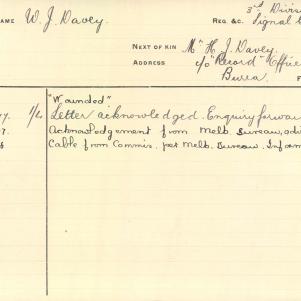 NAME W. J. Davey.
3rd Divis
REG. &C. Signal
NEXT OF KIN Mr H. J. Davey.
ADDRESS c/o "Record" Office
Burra
"Wounded"
Letter acknowledged. Enquiry forwar
Acknowledgement from Melb. Bureau, adv
Cable from Commis. per Melb. Bureau. Inform